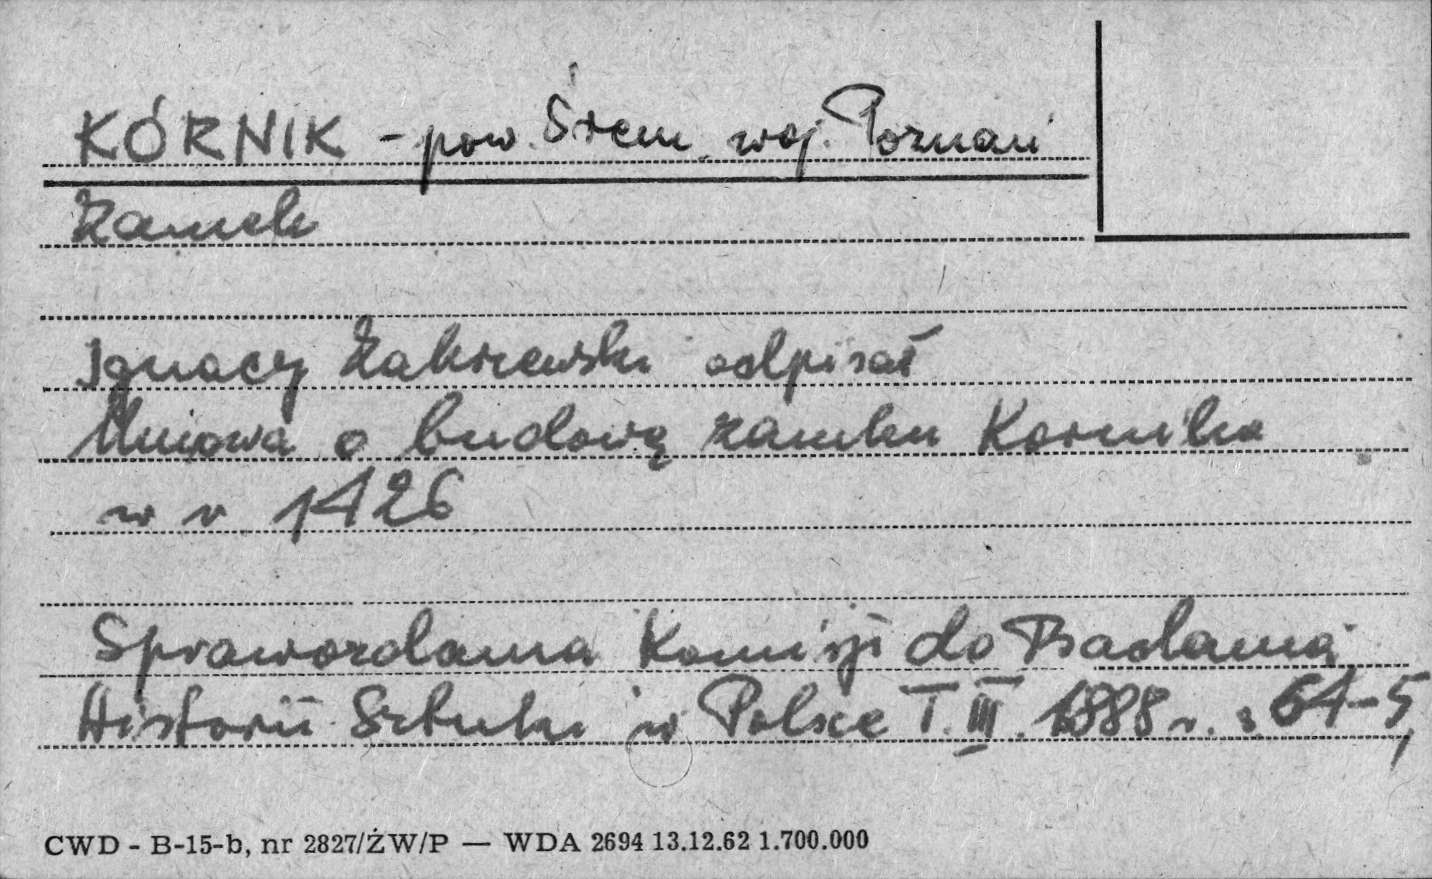 KÓRNIK - pow. Śrem. woj. Poznań
Zamek
Ignacy Zakrzewski odpisał
Umowa o budowę zamku Kornika
w r 1426
Sprawozdania Komisji do Badania
Historii Sztuki w Polsce T. III. 1888 r. s 64-5,
CWD - B-15-b, nr 2827/ŻW/P — WDA 2694 13.12.62 1.700.000